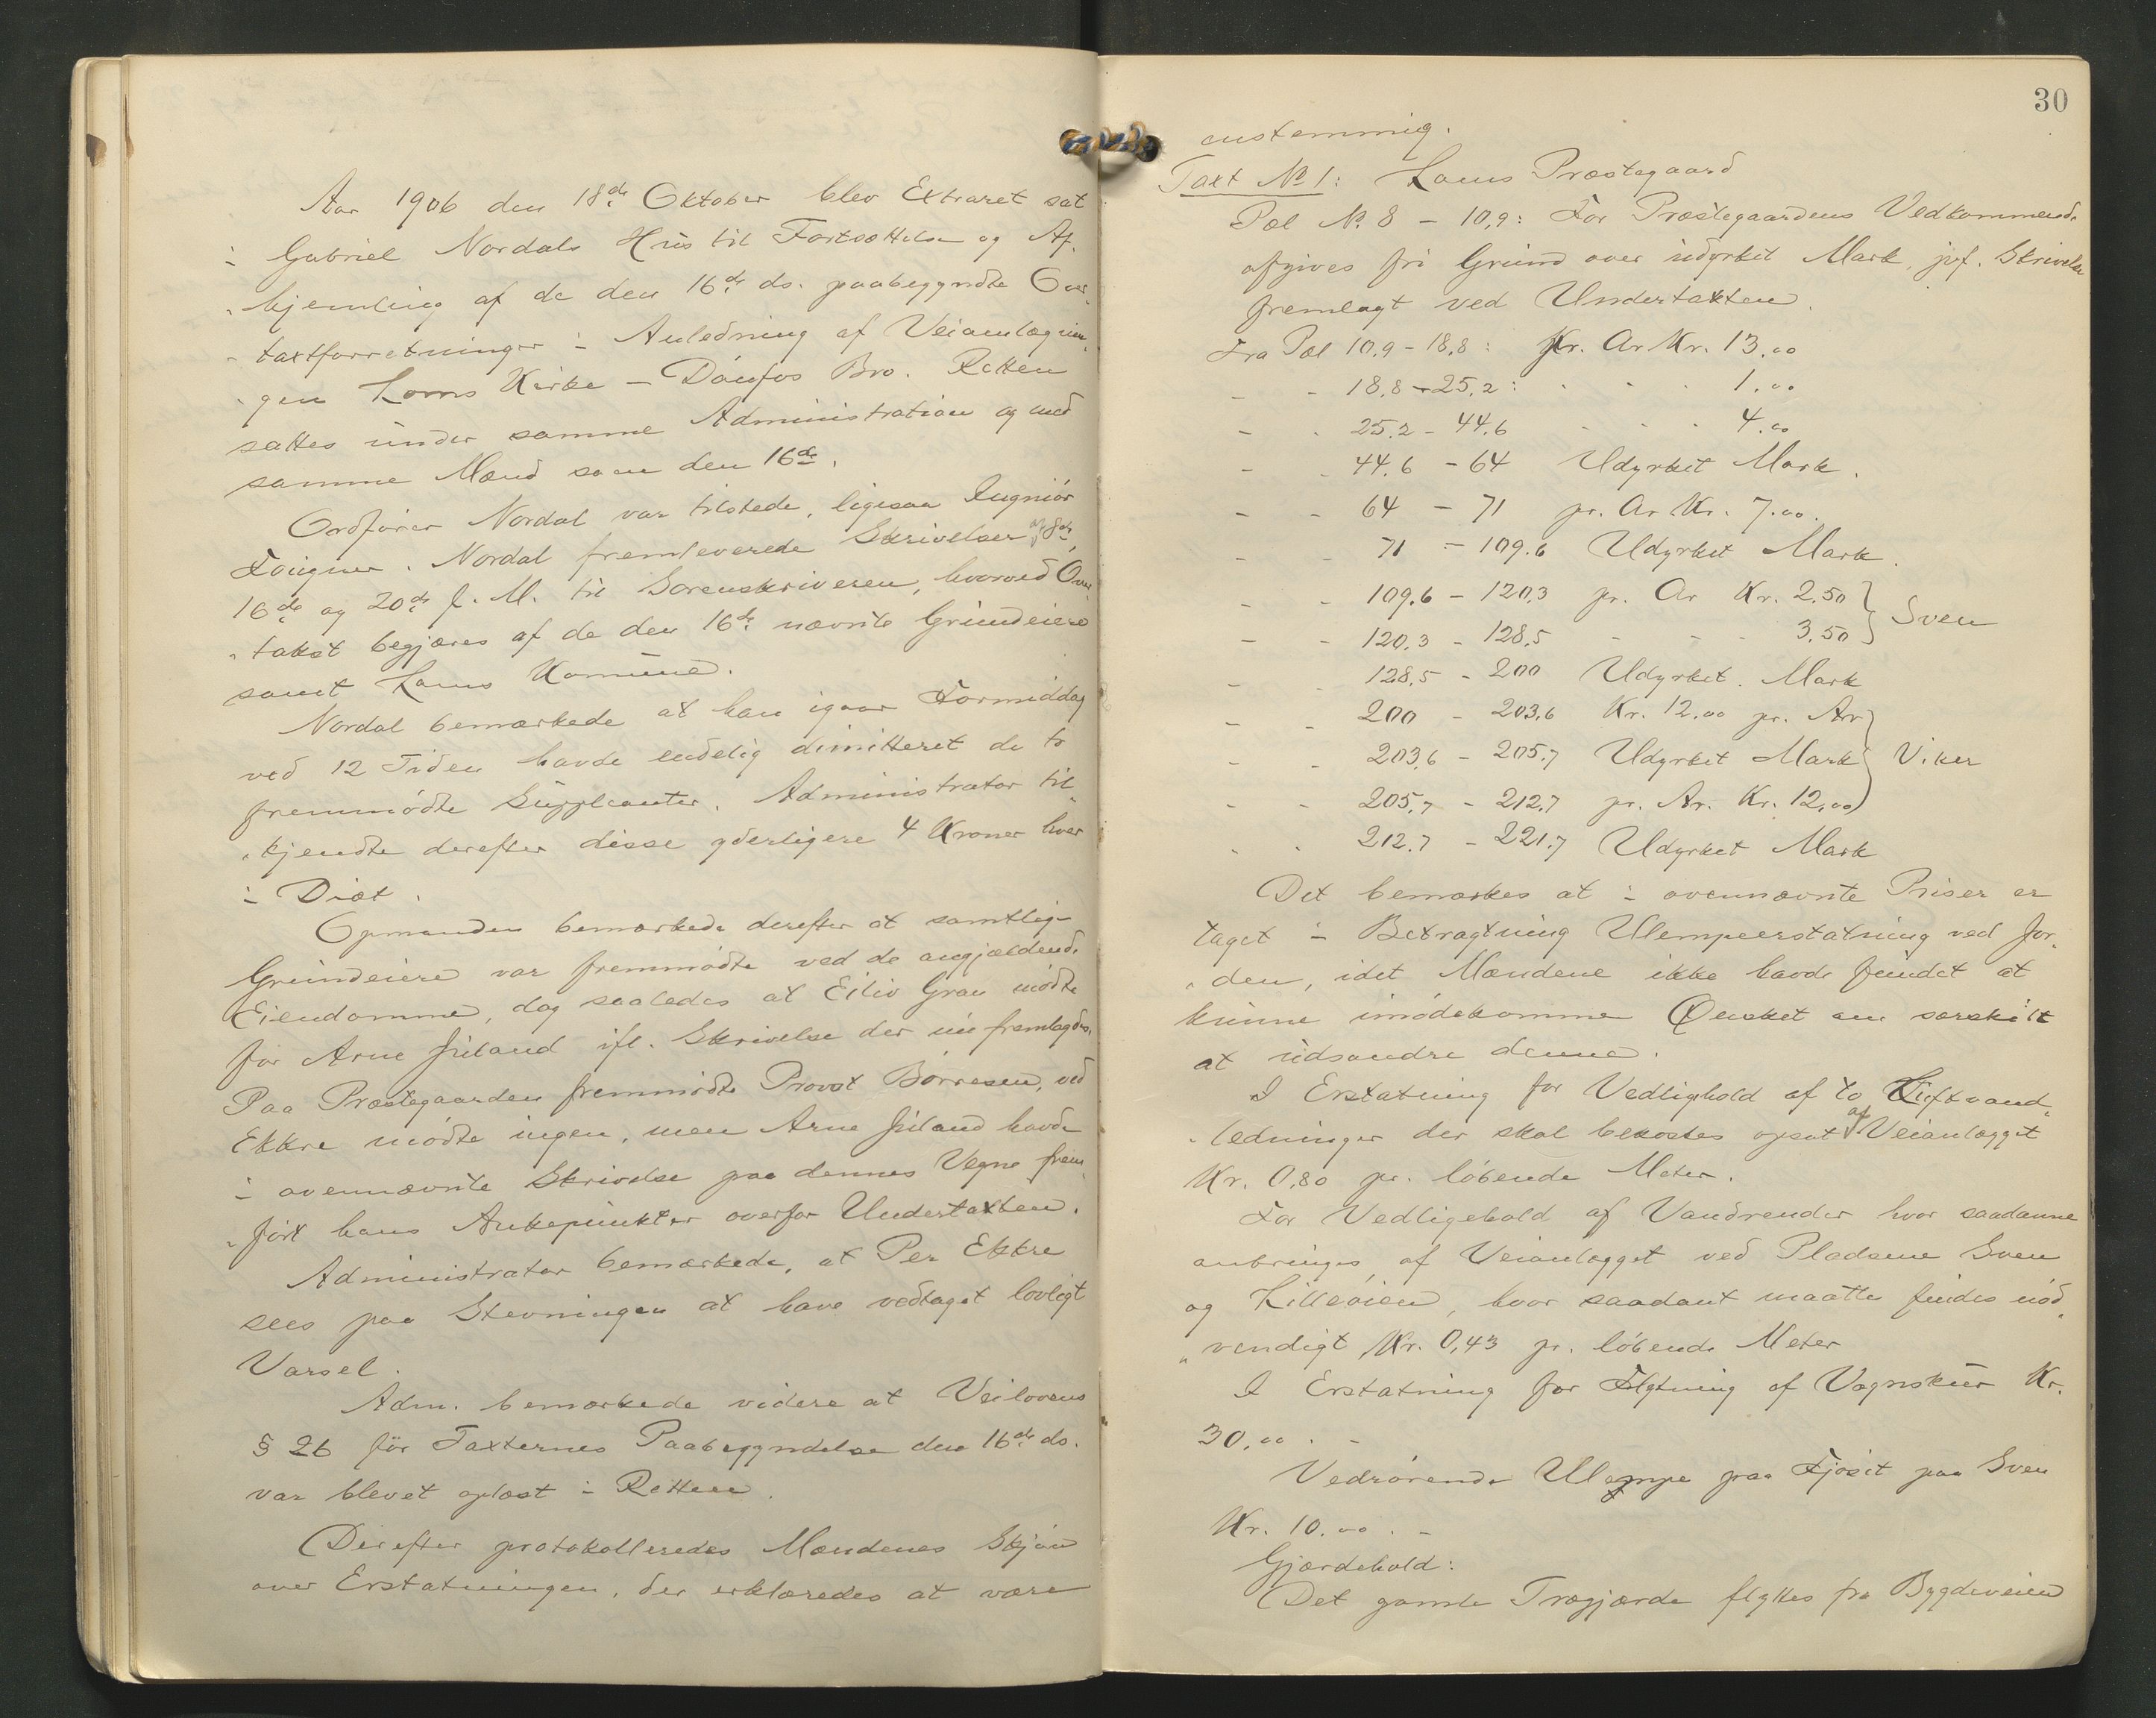 Aar 1906 den 18de Oktober blev Extraret sat
i Gabriel Nordals Hus til Fortsættelse og Af-
"hjemling af de den 16de ds. paabegyndte Over-
"taxtforretninger i Anledning af Veianlægnin-
"gen Loms Kirke - Donfos Bro. Retten
sattes under samme Administration og med
samme Mænd som den 16de.
Ordfører Nordal var tilstede, ligesaa Ingniør
Fougner. Nordal fremleverede Skrivelser af 8de,
16de og 20de f. M. til Sorenskriveren, hvorved Over-
"takst begjæres af de den 16de nævnte Grundeiere
samt Loms Komune.
Nordal bemærkede at han igaar Formiddag
ved 12 Tiden havde endelig dimitteret de to
fremmødte Suppleanter. Administrator til-
"kjendte derefter disse yderligere 4 Kroner hver
i Diæt.
Opmanden bemærkede derefter at samtlige
Grundeiere var fremmødte ved de angjældende
Eiendomme, dog saaledes at Eiliv Grau mødte
for Arne juland ifl. Skrivelse der nu fremlagdes.
Paa Præstegaarden fremmødte Provst Børresen, ved
Ekkre mødte ingen, men Arne juland havde
i ovennævnte Skrivelse paa dennes Vegne frem-
"ført hans Ankepunkter overfor Undertaxten.
Administrator bemærkede, at Per Ekkre
sees paa Stevningen at have vedtaget lovligt
Varsel.
Adm. bemærkede videre at Veilovens
§ 26 før Taxternes Paabegyndelse den 16de ds.
var blevet oplæst i Retten.
Derefter protokolleredes Mændenes Skjøn
over Erstatningen, der erklæredes at være
30
enstemmig.
Taxt No 1: Loms Præstegaard
Pæl No. 8 - 10,9: For Præstegaardens Vedkommende
afgives fri Grund over udyrket Mark, jvf. Skrivelse
fremlagt ved Undertakten.
Fra Pæl 10.9 - 18,8: pr. Ar Kr. 13.00
- - 18,8 - 25,2: - - - 1.00
- - 25.2 - 44.6 - - - 4.00
- - 44.6 - 64 Udyrket Mark.
- - 64 - 71 pr. Ar Kr. 7.00.
- - 71 - 109.6 Udyrket Mark.
- - 109.6 - 120,3 pr. Ar Kr. 2.50 } Sven
- - 120.3 - 128,5 - - - 3.50
- - 128,5 - 200 Udyrket Mark
- - 200 - 203,6 Kr. 12.00 pr. Ar
- - 203,6 - 205,7 Udyrket Mark } Viker
- - 205,7 - 212,7 pr. Ar. Kr. 12,00
- - 212.7 - 221.7 Udyrket Mark
Det bemærkes at i ovennævnte Priser er
taget i Betragtning Ulempeerstatning ved Jor-
"den, idet Mændene ikke havde fundet at
kunne imødekomme Ønsket om særskilt
at udsondre denne.
I Erstatning for Vedlighold af to Luftvand-
"ledninger der skal bekostes opsat af Veianlægget
Kr. 0,80 pr. løbende Meter.
For Vedligehold af Vandrender hvor saadanne
anbringes af Veianlægget ved Pladsene Sven
og Lilleøien, hvor saadant maatte findes nød-
"vendigt, Kr. 0,43 pr. løbende Meter
I Erstatning for Flytning af Vognskur Kr.
30,00. -
Vedrørende Ulempe paa Fjøsit paa Sven
Kr. 10.00. -
Gjærdehold:
Det gamle Trægjærde flyttes fra Bygdeveien